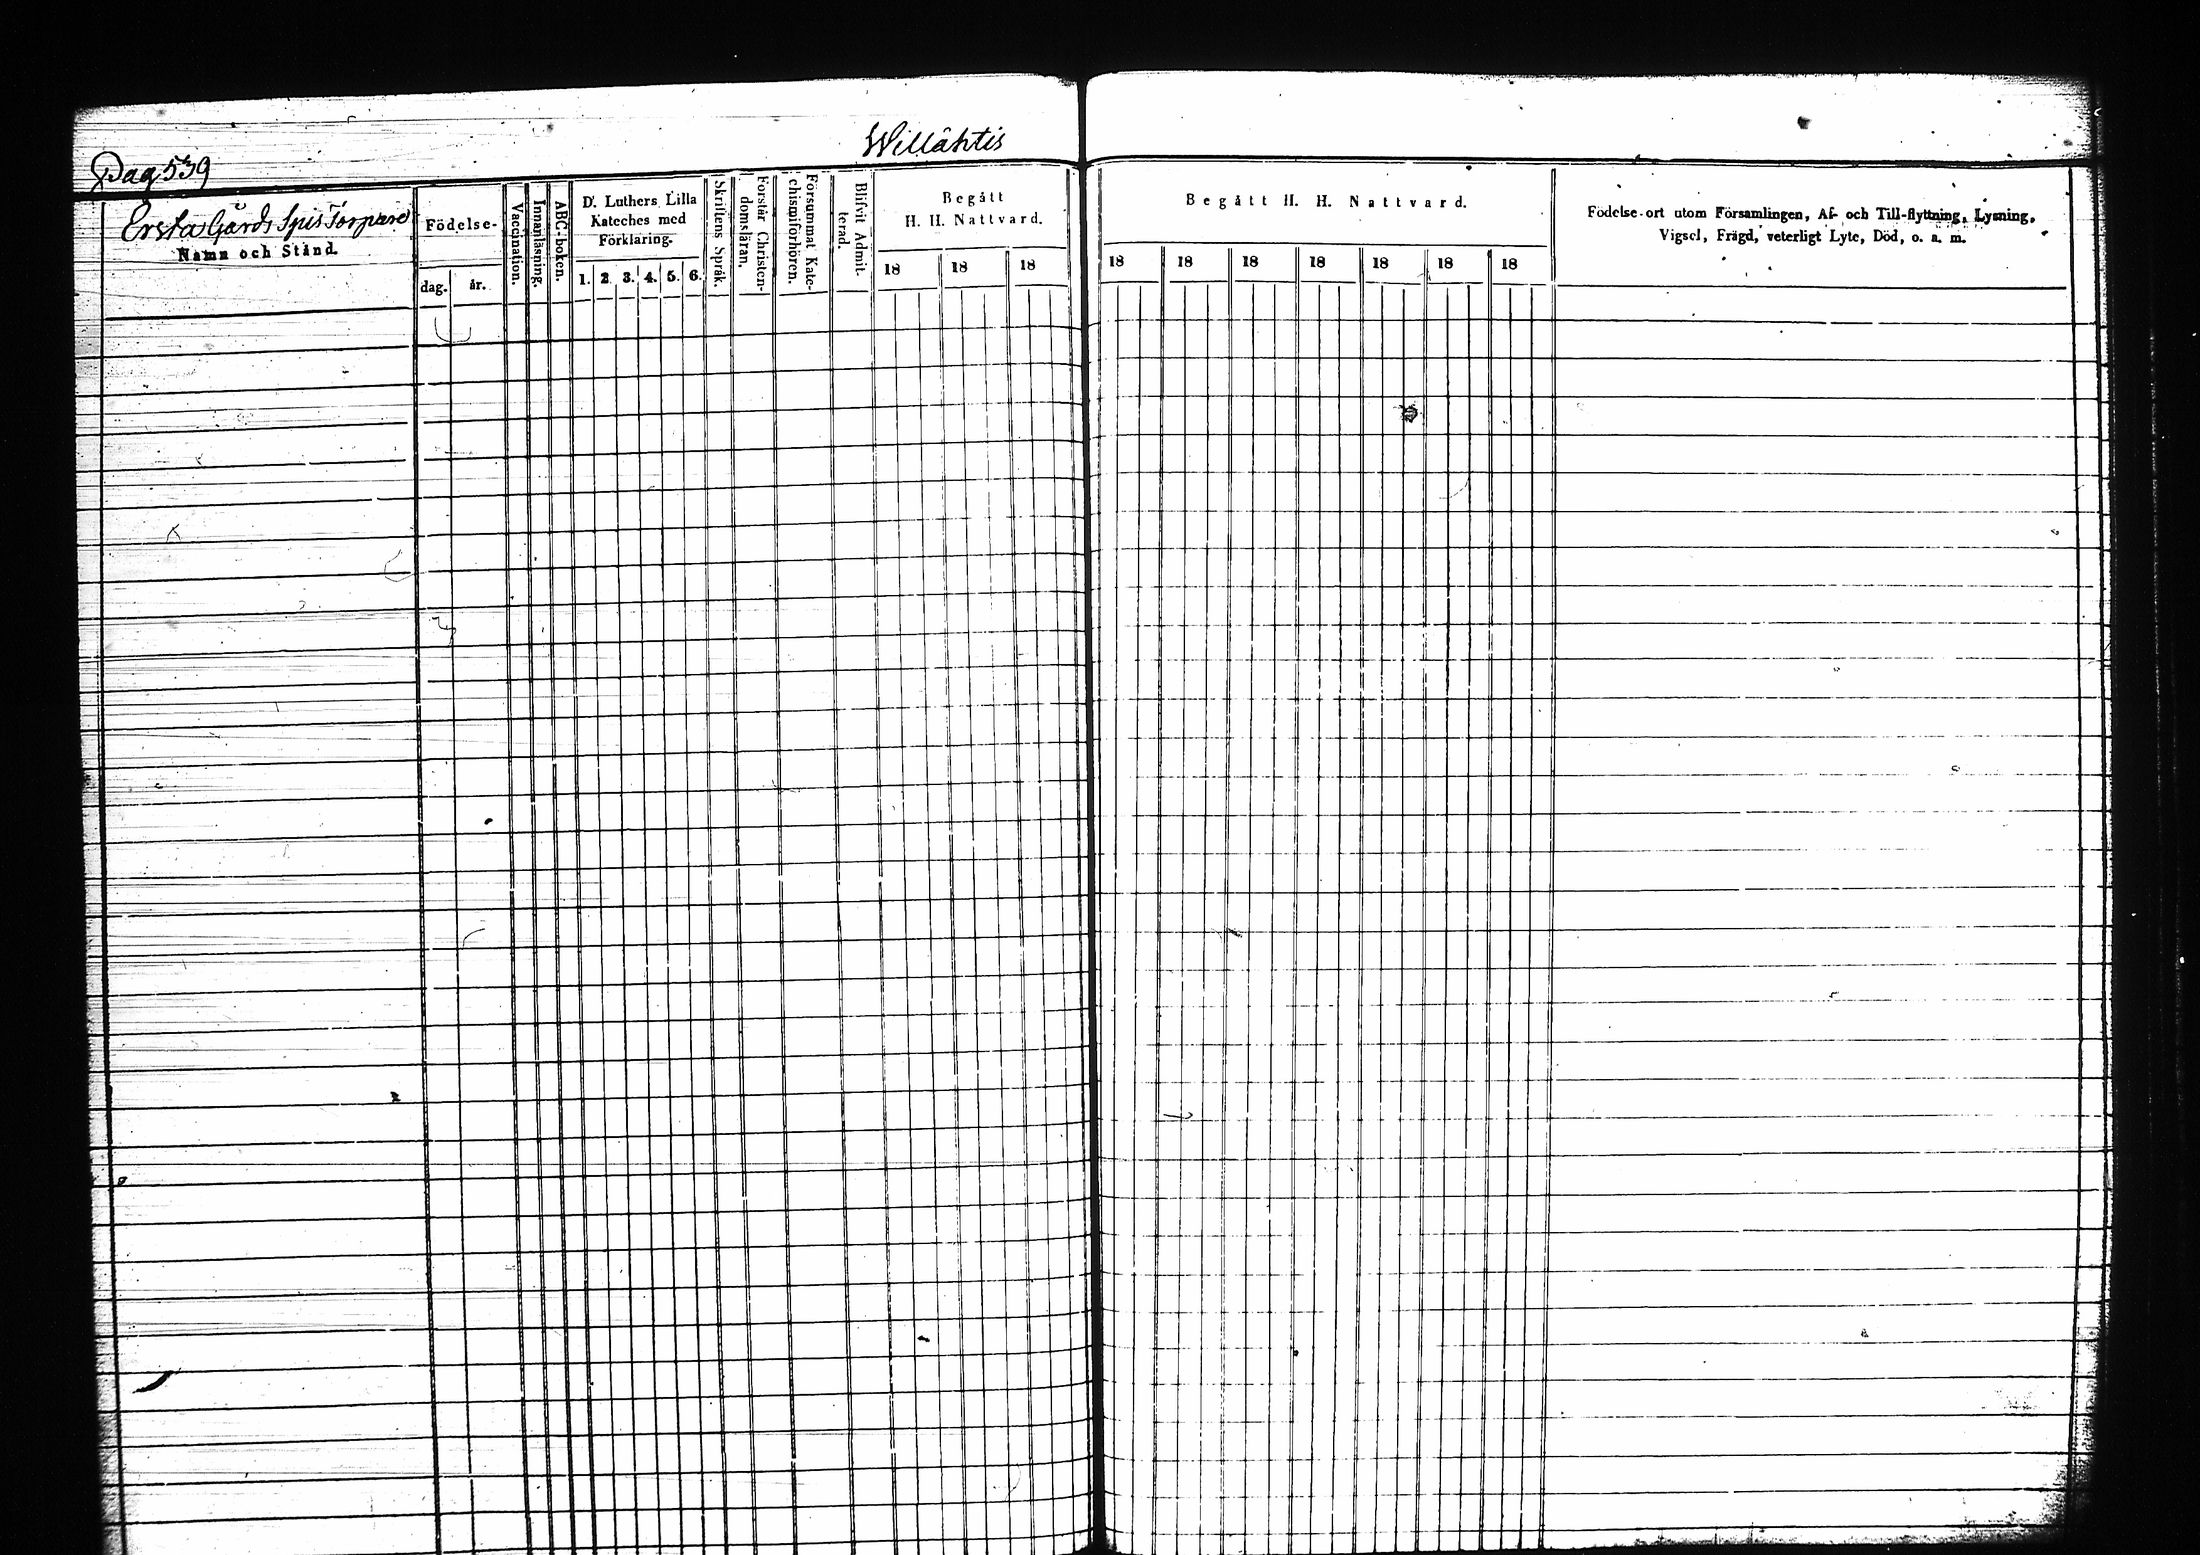 Willähtis
Pag 539
Ersta Gårds Spis Torpare
Namn och Stånd.
Födelse-
dag. år.
Vaccination.
Innanläsning.
ABC-boken.
D. Luthers Lilla
Kateches med
Förklaring.
1. 2 3. 4. 5. 6.
Skriftens Språk.
Förstår Christen-
domsläran.
Försummat Kate-
chismiförhören.
Blifvit Admit-
terad.
Begått
H. H. Nattvard.
18 18 18
Begått H. H. Nattvard.
18 18 18 18 18 18 18
Födelse-ort utom Församlingen, Af- och Till-flyttning, Lysning,
Vigsel, Frägd, veterligt Lyte, Död, o. a. m.